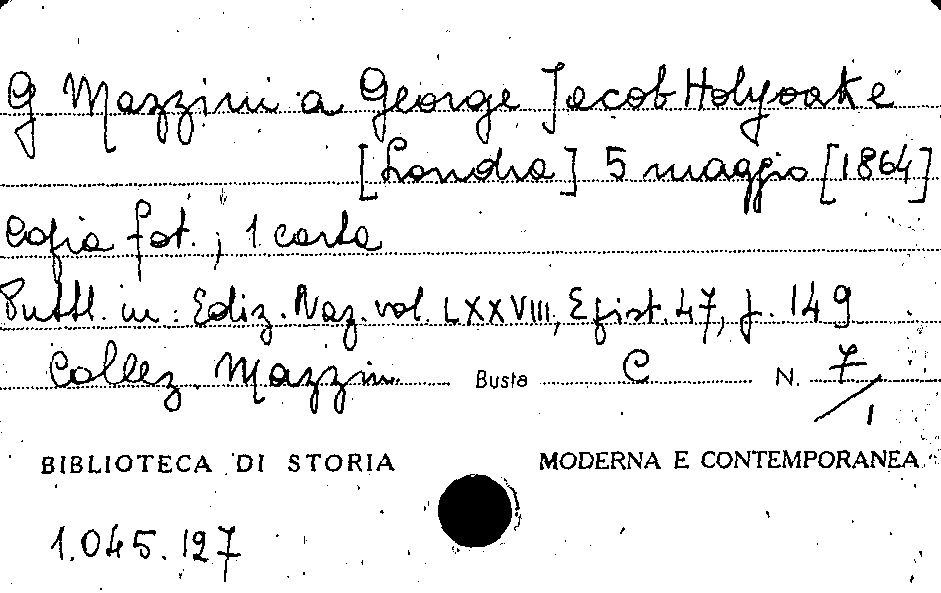 G Mazzini a George Jacob Holyoake
[Londra] 5 maggio [1864]
Copia fot.; 1 carta
Pubbl. in: Ediz. Naz. vol. LXXVIII, Epist. 47, p. 149
Collez. Mazzini Busta C N. 7/1
BIBLIOTECA DI STORIA MODERNA E CONTEMPORANEA
1.045.127